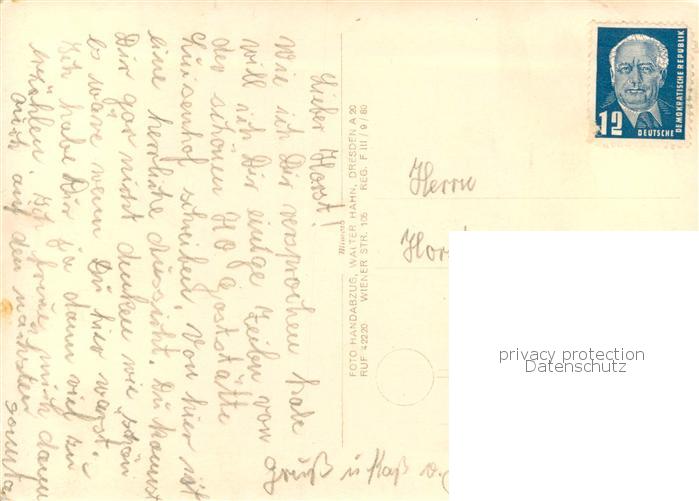 Lieber Horst!
Wie ich Dir versprochen habe
will ich Dir einige Zeilen von
der schönen HO Gaststätte
Luisenhof schreiben. Von hier ist
eine herrliche Aussicht. Du kannst
Dir gar nicht denken wie schön
es wäre wenn Du hier wärst.
Ich habe Dir ja dann viel zu
erzählen. Ich freue mich dann
auch auf den nächsten
Sonnta
Gruß u
Mimosa
FOTO HANDABZUG, WALTER HAHN, DRESDEN A 20
RUF 42220 WIENER STR. 105 REG. F III / 9 / 80
12
DEUTSCHE
DEMOKRATISCHE REPUBLIK
Herrn
privacy protection
Datenschutz